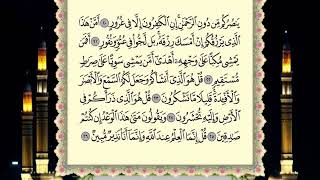 يَنصُرُكُم مِّن دُونِ ٱلرَّحْمَٰنِ إِنِ ٱلْكَٰفِرُونَ إِلَّا فِى غُرُورٍ ٢٠ أَمَّنْ هَٰذَا
ٱلَّذِى يَرْزُقُكُمْ إِنْ أَمْسَكَ رِزْقَهُۥ بَل لَّجُّوا۟ فِى عُتُوٍّ وَنُفُورٍ ٢١ أَفَمَن
يَمْشِى مُكِبًّا عَلَىٰ وَجْهِهِۦٓ أَهْدَىٰٓ أَمَّن يَمْشِى سَوِيًّا عَلَىٰ صِرَٰطٍ
مُّسْتَقِيمٍ ٢٢ قُلْ هُوَ ٱلَّذِىٓ أَنشَأَكُمْ وَجَعَلَ لَكُمُ ٱلسَّمْعَ وَٱلْأَبْصَٰرَ
وَٱلْأَفْـِٔدَةَ قَلِيلًا مَّا تَشْكُرُونَ ٢٣ قُلْ هُوَ ٱلَّذِى ذَرَأَكُمْ فِى
ٱلْأَرْضِ وَإِلَيْهِ تُحْشَرُونَ ٢٤ وَيَقُولُونَ مَتَىٰ هَٰذَا ٱلْوَعْدُ إِن كُنتُمْ
صَٰدِقِينَ ٢٥ قُلْ إِنَّمَا ٱلْعِلْمُ عِندَ ٱللَّهِ وَإِنَّمَآ أَنَا۠ نَذِيرٌ مُّبِينٌ ٢٦